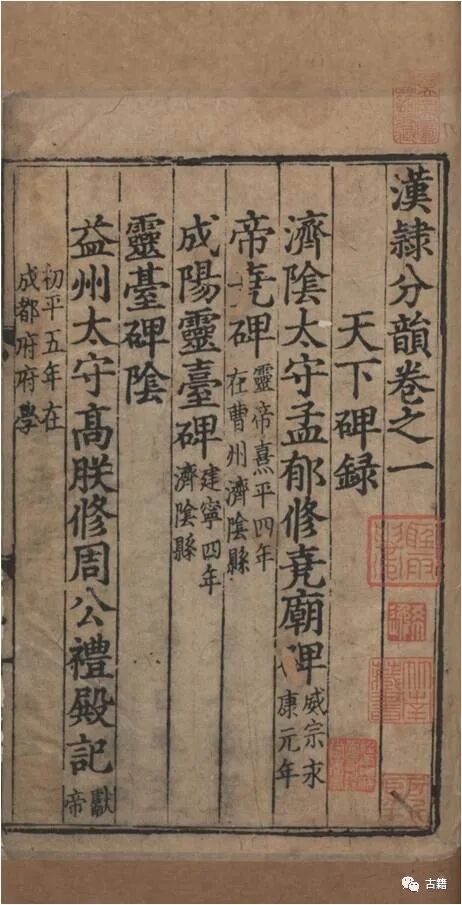 漢隷分韻卷之一
天下碑録
濟陰太守孟郁修堯廟碑 威宗永
康元年
帝堯碑 靈帝熹平四年
在曹州濟陰縣
成陽靈臺碑 建寧四年
濟陰縣
靈臺碑陰
益州太守高朕修周公禮殿記 獻
帝
初平五年在
成都府府學
古籍